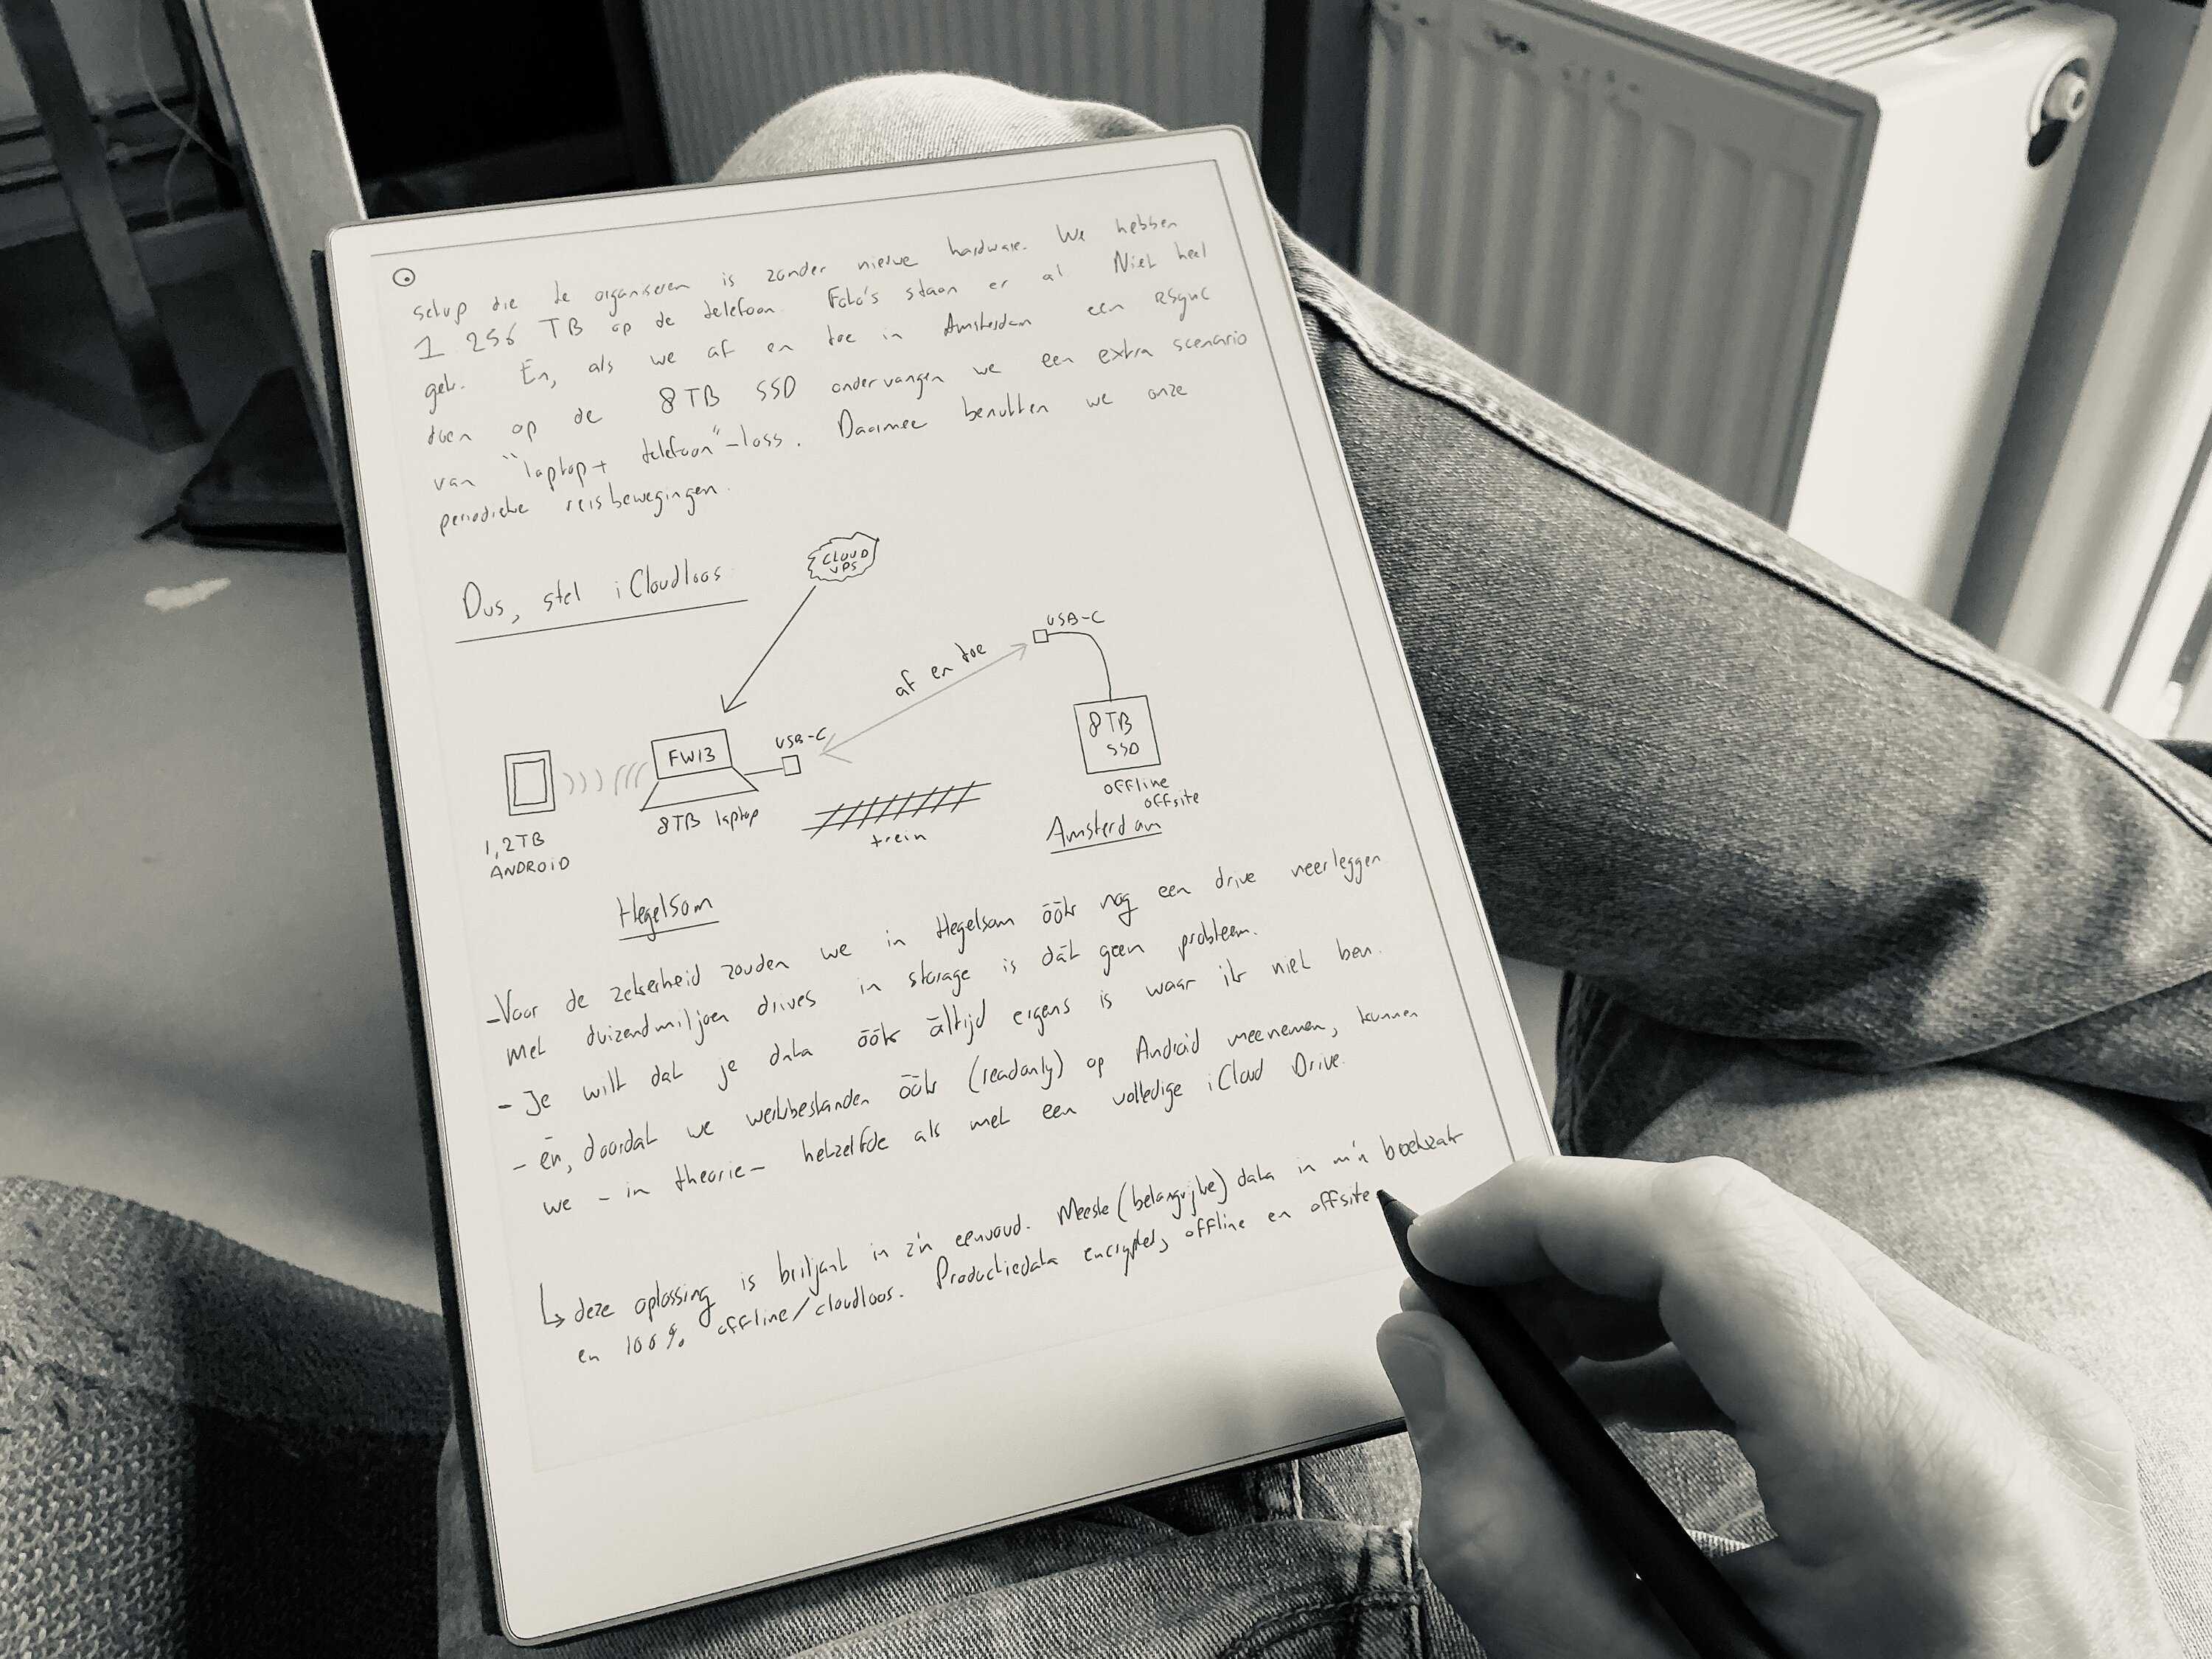 setup die te organiseren is zonder nieuwe hardware. We hebben
1 256 TB op de telefoon. Foto's staan er al. Niet heel
gek. En, als we af en toe in Amsterdam een rsync
doen op de 8TB SSD ondervangen we een extra scenario
van "laptop+ telefoon"-loss. Daarmee benutten we onze
periodieke reisbewegingen.
Dus, stel iCloudloos
CLOUD
VPS
USB-C
af en toe
USB-C
FW13
8TB
SSD
8TB laptop
trein
offline
offsite
1,2TB
ANDROID
Amsterdam
Hegelsom
-Voor de zekerheid zouden we in Hegelsom óók nog een drive neerleggen.
Met duizendmiljoen drives in storage is dát geen probleem.
- Je wilt dat je data óók áltijd ergens is waar ik niet ben.
- én, doordat we werkbestanden óók (readonly) op Android meenemen, kunnen
we - in theorie - hetzelfde als met een volledige iCloud Drive.
↳ deze oplossing is briljant in z'n eenvoud. Meeste (belangrijke) data in m'n broekzak
en 100% offline/cloudloos. Productiedata encrypted, offline en offsite